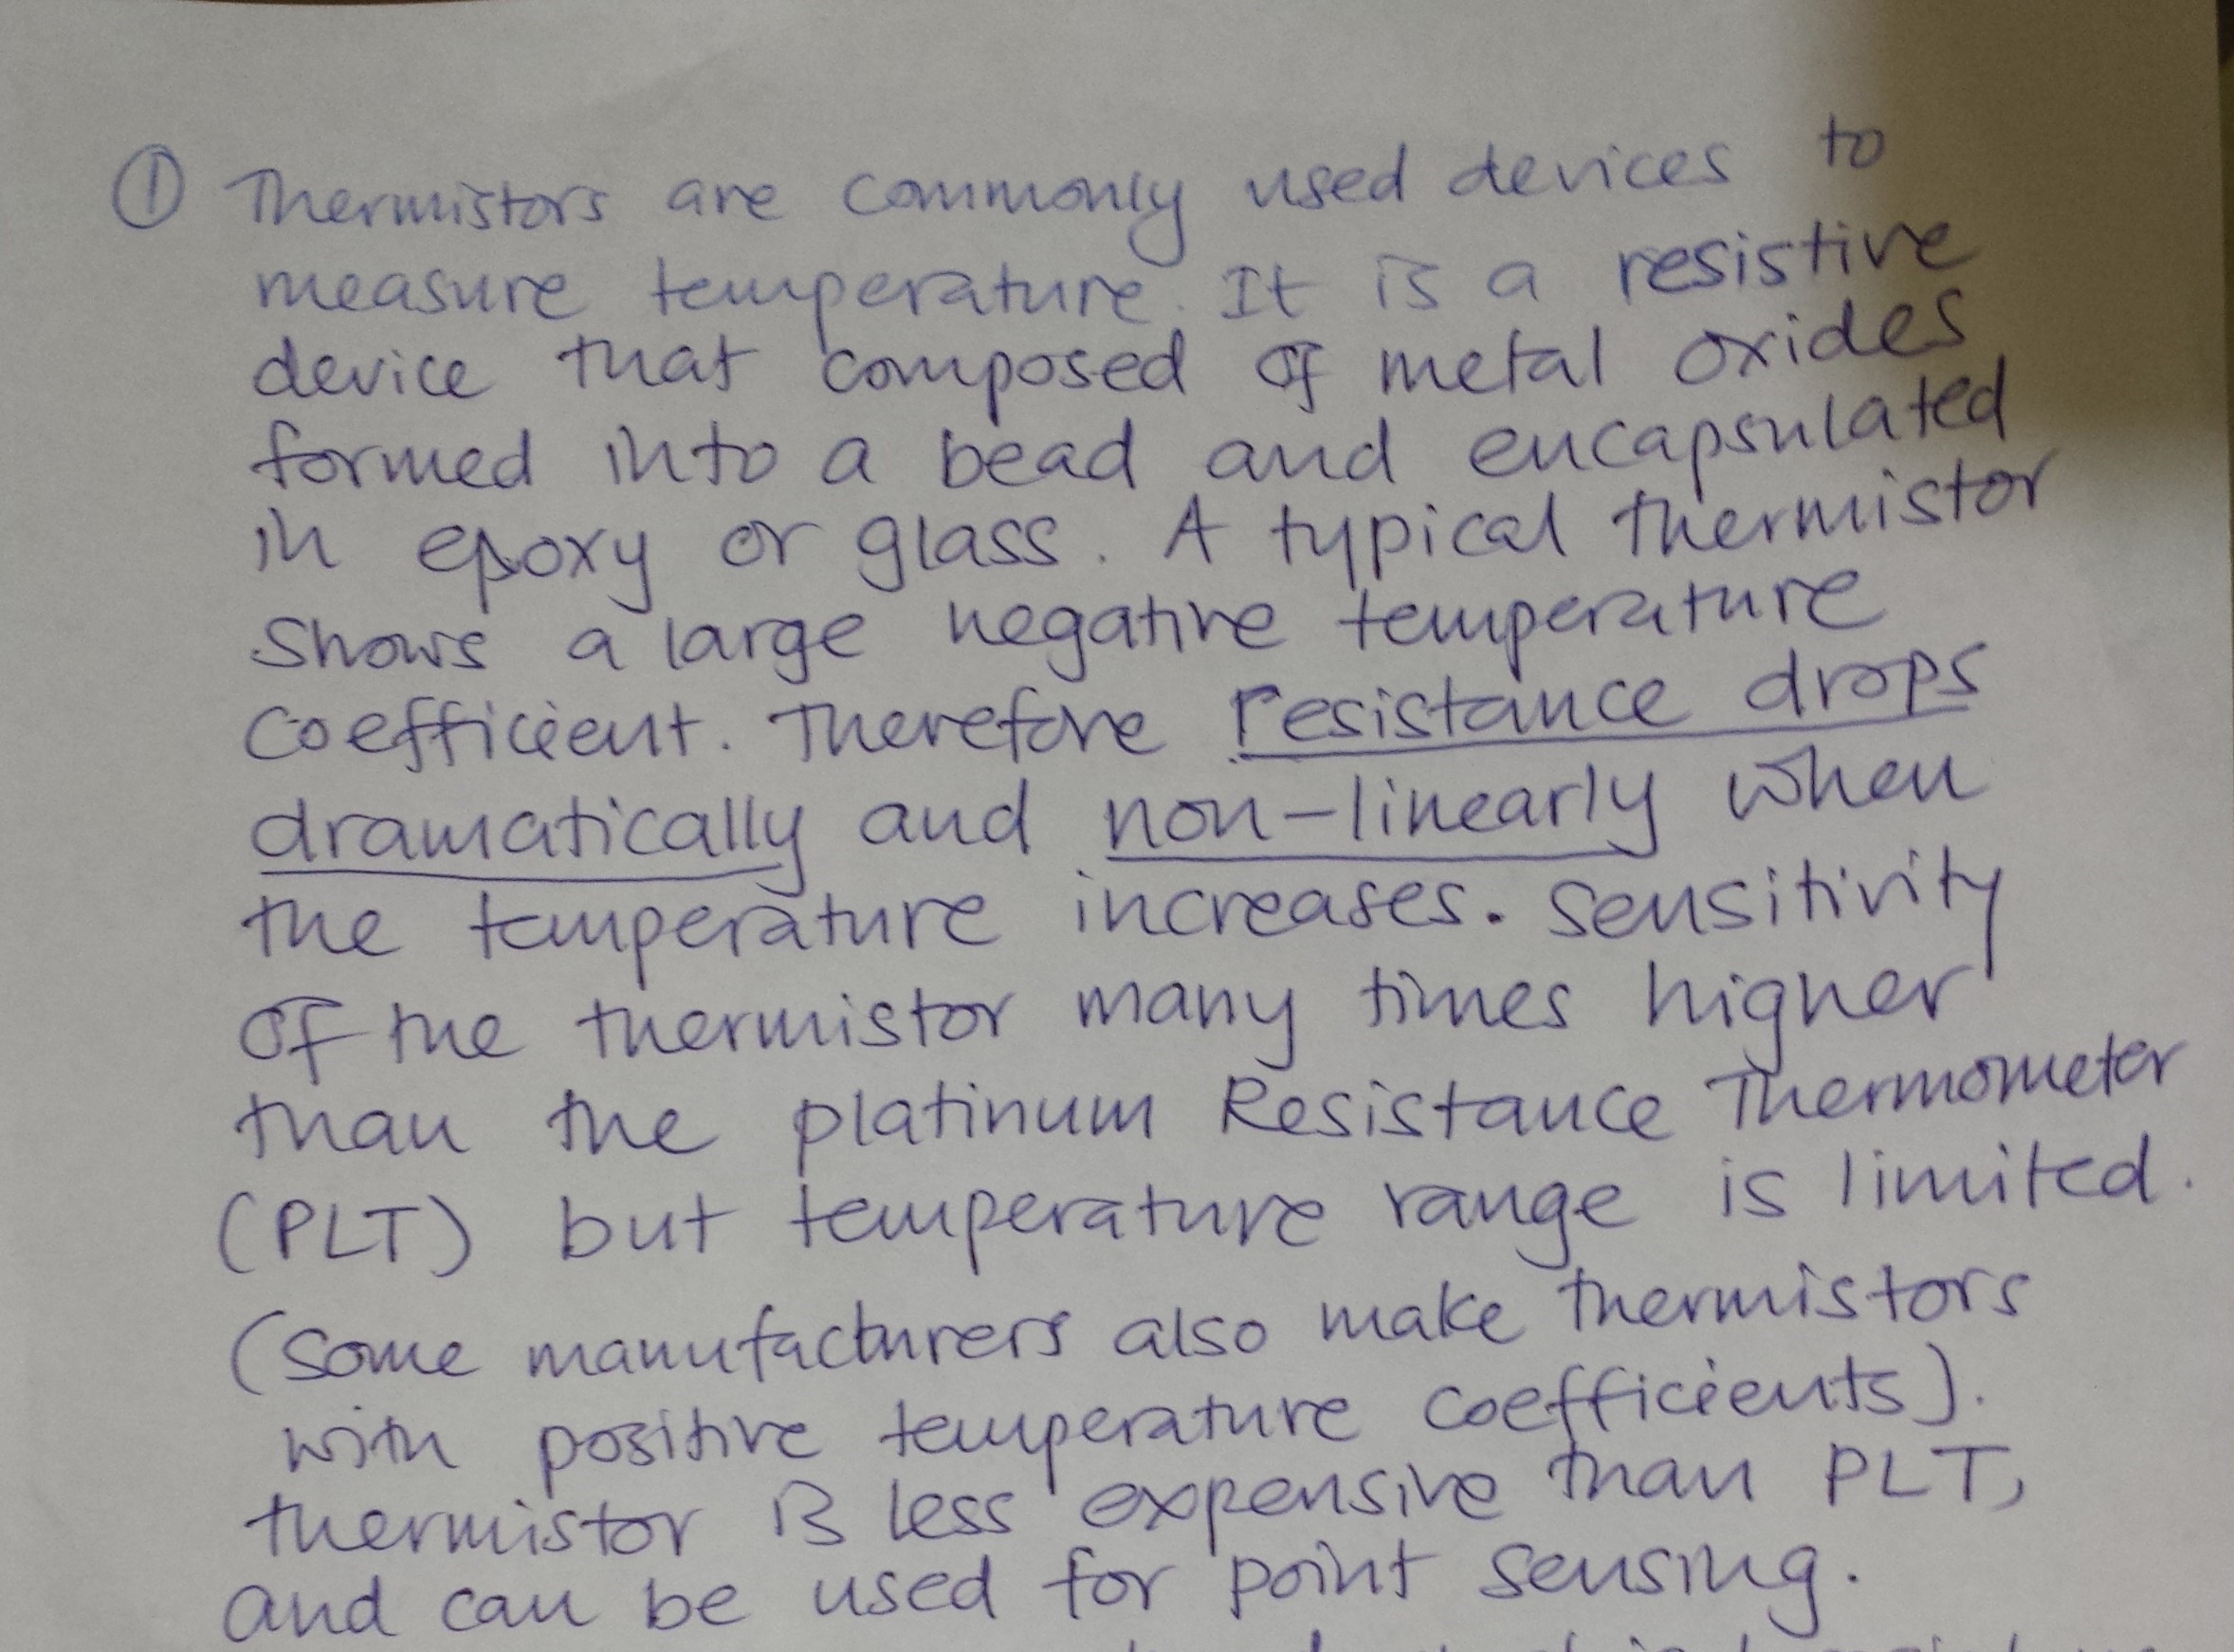 ① Thermistors are commonly used devices to
measure temperature. It is a resistive
device that composed of metal oxides
formed into a bead and encapsulated
in epoxy or glass. A typical thermistor
shows a large negative temperature
coefficient. Therefore resistance drops
dramatically and non-linearly when
the temperature increases. Sensitivity
of the thermistor many times higher
than the platinum Resistance Thermometer
(PLT) but temperature range is limited.
(Some manufacturers also make thermistors
with positive temperature coefficients).
thermistor is less expensive than PLT,
and can be used for point sensing.